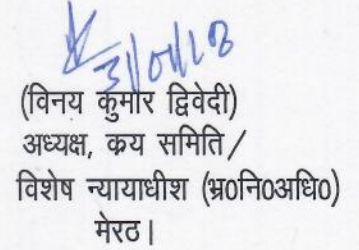 31/01/18
(विनय कुमार द्विवेदी)
अध्यक्ष, क्रय समिति/
विशेष न्यायाधीश (भ्र0नि0अधि0)
मेरठ।